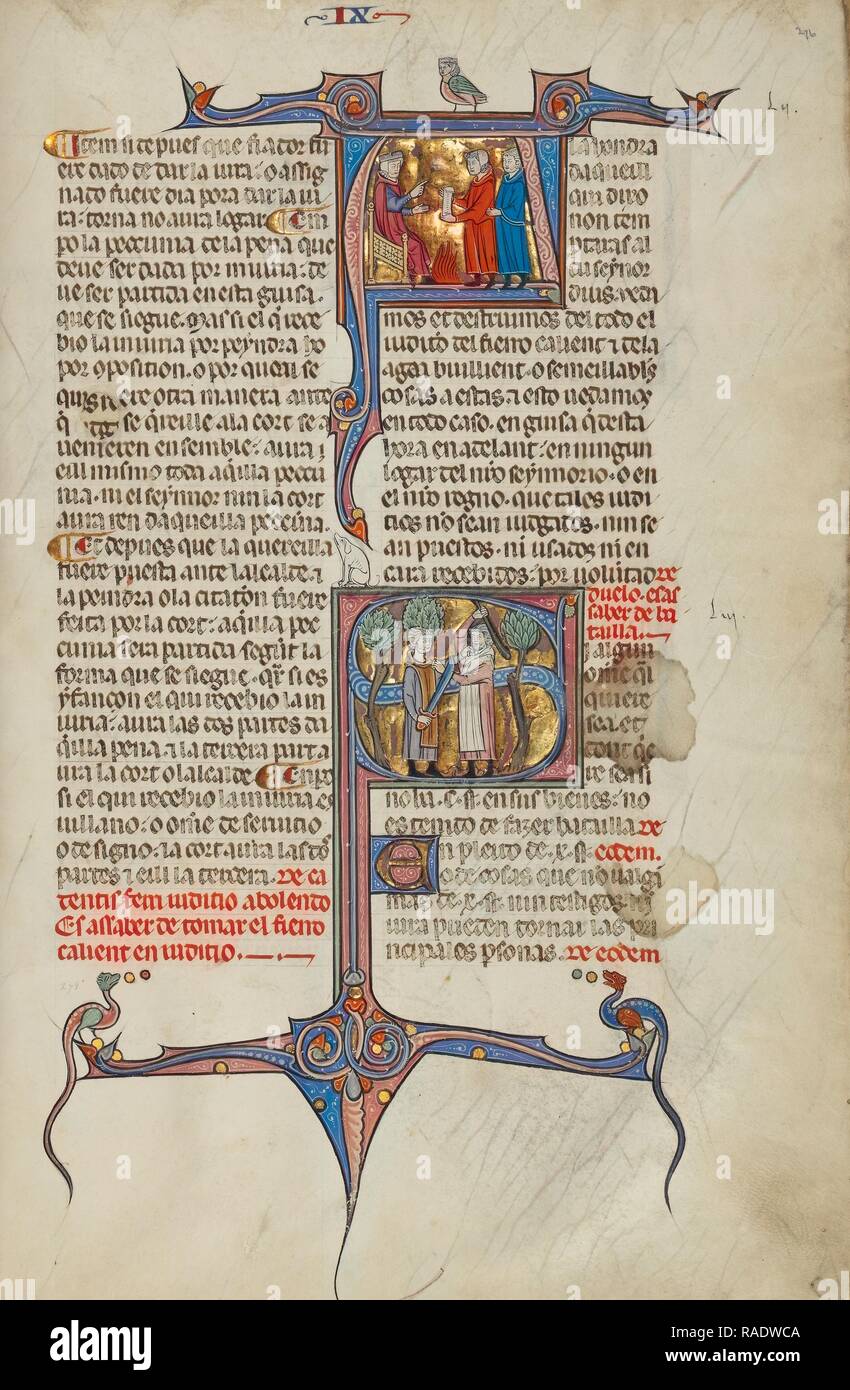 IX
276
Item si depues que fiador fu
ere dado de dar la iura o assig
nado fuere dia pora dar la iu
ra torna no aura logar. Em
po la peccunia de la pena que
deue ser dada por iniuria de
ue ser partida en esta guisa.
que se siegue. Mas si el q̃ rece
bio la iniuria por peyndra ho
por oposition. o por qual se
quisiere otra manera ante
q̃ se q̃reille ala cort se a
uenieren en semble aura
eill mismo toda aq̃illa peccu
nia. ni el seynnor nin la cort
aura ren daqueilla peccunia.
Et depues que la quereilla
fuere puesta ante lalcalde
la peindra o la citation fuere
feita por la cort aq̃illa pec
cunia sera partida segũt la
forma que se siegue. q̃r si es
yfançon el qui recebio la in
iuria aura las dos partes da
q̃illa pena ⁊ la tercera part a
ura la cort o la alcalde Enpo
si el qui recebio la iniuria es
uillano o ome de seruitio
o de signo la cort aura las dos
partes ⁊ eill la tercera. De ca
dentis ferri iuditio abolendo
Es assaber de tornar el fierro
calient en iuditio.
Ly.
La hondra
daqueill
qui dixo
non tem
ptaras al
tu seynor
dius. vedi
mos et destruimos del todo el
iuditio del fierro calient ⁊ dela
agoa buillient. o semeillables
cosas a estas ⁊ esto uedamos
en todo caso. en guisa q̃ desta
hora en adelant en ningun
logar del nr̃o seynnorio. o en
el nr̃o regno. que tales iudi
tios nõ sean iudgados. nin se
an puestos. ni usados ni en
cara recebidos. por uoluntad De
duelo. es as
saber de ba
tailla.
Lyj.
algun
ome q̃l
quiere
sea. et
tout q̃e
re seasi
no ha .c. sł. en sus bienes. no
es tenido de fazer batailla. De
En pleito de .x. sł. eodem.
o de cosas que no ualgã
mas de .x. sł. nin testigos ni
iura pueden tornar las pri
ncipales p̃sonas. De eodem
alamy
Image ID: RADWCA
www.alamy.com